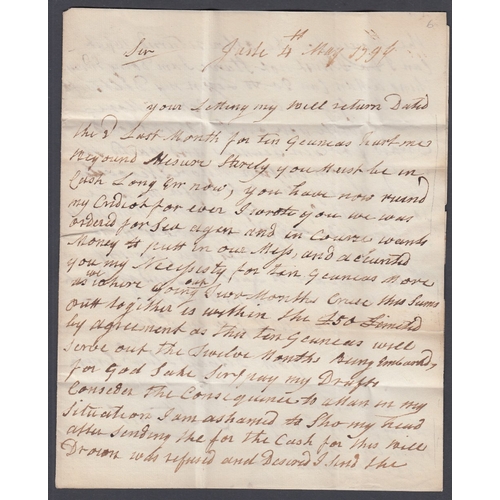 Sir
4th May 1796
your Letting my Will return Dated
the 2d Last Month for ten Geuneas heart me
beyound Mesure Surely you Must be in
Cash Long Err now, you have now ruin'd
my Cridiot for ever I wrote you we was
ordered for Sea again and in Course wants
Money to putt in our Mess, and acuinted
you my Necissity for ten Geuneas More
as we where Going on Months Cruse this Sums
outt together is within the £50 Limited
by agreement as this ten Geuneas will
Serve out the Twelve Months Being Embarked,
for God Sake Sir pay my Drafts
Consider the Consequence to a Man in my
Situation I am ashamed to Sho my head
after Sending the for the Cash for this Will
Drown was refused and Desired I Send the